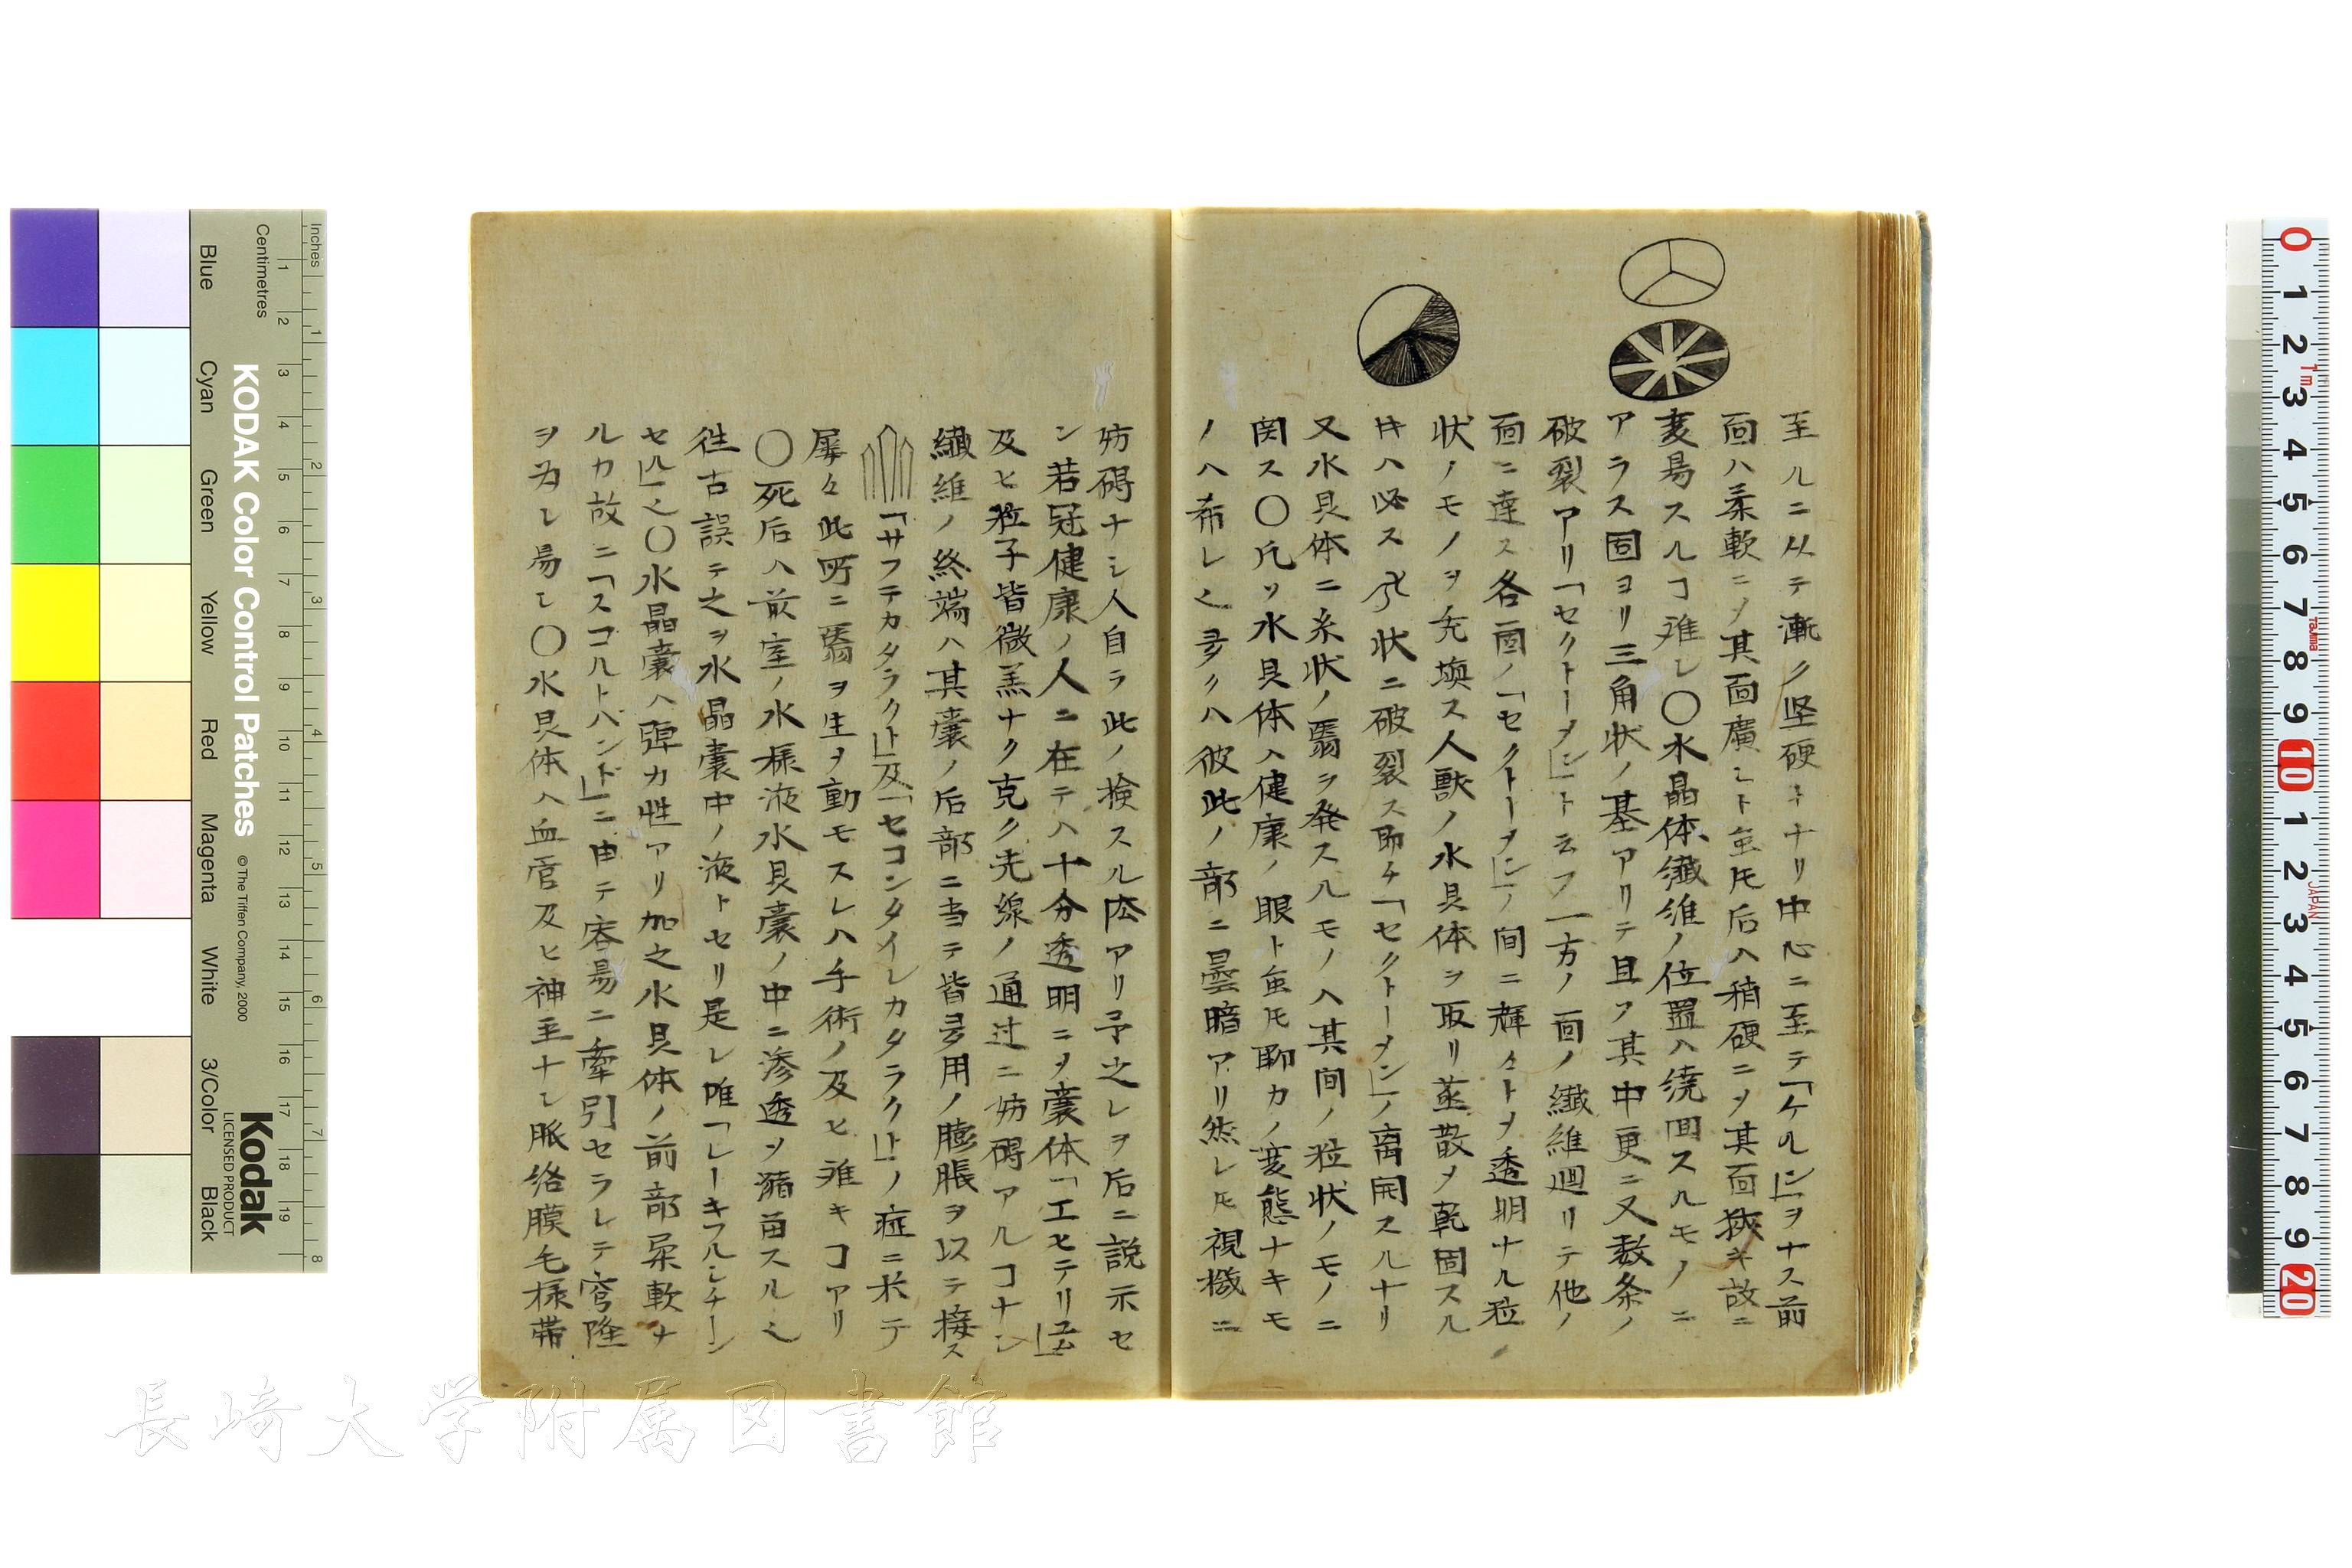 至ルニ从テ漸ク坚硬トナリ中心ニ至テ「ケルン」ヲナス前
面ハ柔軟ニメ其面廣シト虽𪜈后ハ稍硬ニメ其面狹キ故ニ
変易スルヿ难シ〇水晶体纎維ノ位置ハ繞回スルモノニ
アラス固ヨリ三角状ノ基アリテ且ツ其中更ニ又数条ノ
破裂アリ「セクトーメン」ト云フ一方ノ面ノ纎維廻リテ他ノ
面ニ達ス各面ノ「セクトーメン」ノ間ニ輝々トメ透明ナル粒
状ノモノヲ充塡ス人獸ノ水晶体ヲ取リ蒸散メ乾固スル
𪜈ハ必ス状ニ破裂ス即チ「セクトーメン」ノ离開スルナリ
又水晶体ニ糸状ノ翳ヲ発スルモノハ其间ノ粒状ノモノニ
関ス〇凡ソ水晶体ハ健康ノ眼ト虽𪜈聊カノ変態ナキモ
ノハ希レ也多クハ彼此ノ部ニ曇暗アリ然レ𪜈視機ニ
妨碍ナシ人自ラ此ノ検スル法アリ予之レヲ后ニ説示セ
ン若冠健康ノ人ニ在テハ十分透明ニメ嚢体「エヒテリユム」
及ヒ粒子皆微恙ナク克ク光線ノ通过ニ妨碍アルヿナシ
纎維ノ終端ハ其嚢ノ后部ニ当テ皆多用ノ膨脹ヲ以テ接ス
「サフテカタラクト」及「セコンダイレカタラクト」ノ症ニ米テ
屡々此所ニ翳ヲ生ヲ動モスレハ手術ノ及ヒ难キヿアリ
〇死后ハ前室ノ水様液水晶嚢ノ中ニ滲透メ瀦畄スル也
往古誤テ之ヲ水晶嚢中ノ液トセリ是レ唯「レーキフルシチーン
セル」也〇水晶嚢ハ弾力性アリ加之水晶体ノ前部柔軟ナ
ルカ故ニ「スコルトハンド」ニ由テ容易ニ牽引セラレテ穹隆
ヲ为シ易シ〇水晶体ハ血管及ヒ神圣ナシ脈絡膜毛様帯
KODAK Color Control Patches
© The Tiffen Company, 2000
Kodak
LICENSED PRODUCT
Inches
Centimetres
Blue
Cyan
Green
Yellow
Red
Magenta
White
3/Color
Black
長崎大学附属図書館